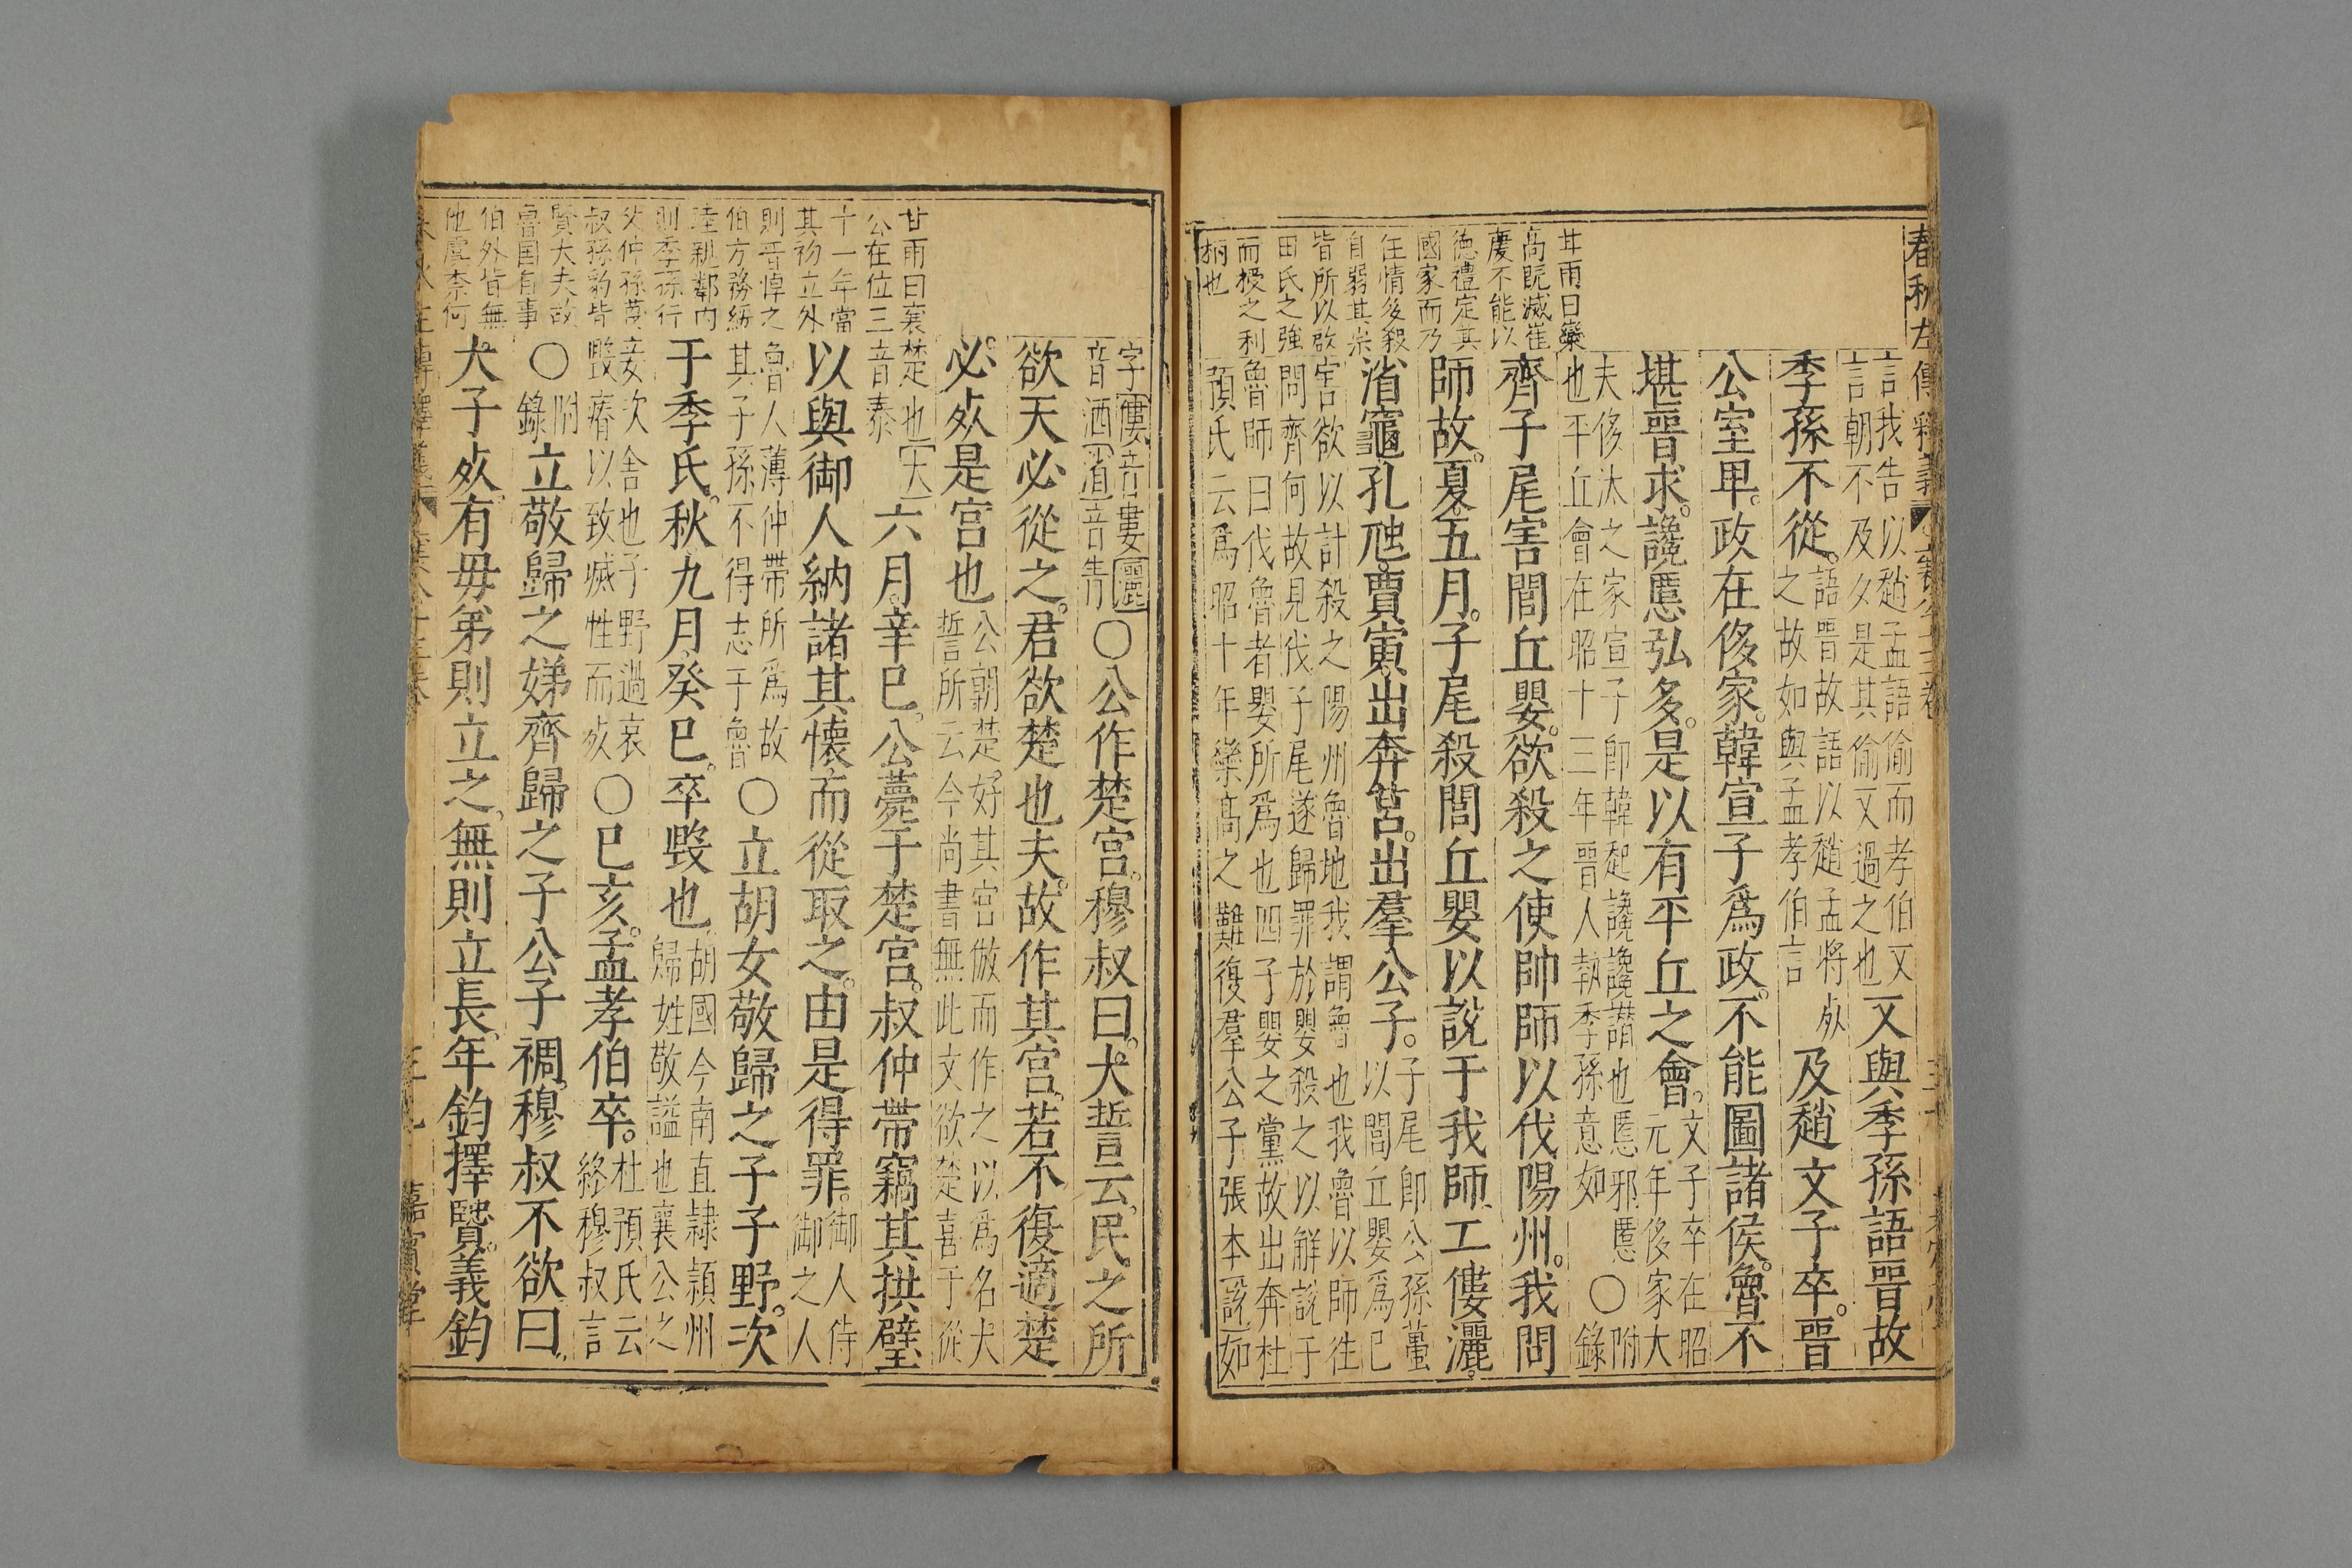 春秋左傳釋義
言我告以趙孟語偷而孝伯又
言朝不及夕是其偷又過之也
又與季孫語晉故
季孫不從
語晉故語以趙孟將死
之故如與孟孝伯言
及趙文子卒晉
公室卑政在侈家韓宣子爲政不能圖諸侯魯不
堪晉求讒慝弘多是以有平丘之會
文子卒在昭
元年侈家大
夫侈汰之家宣子卽韓起讒譖也慝邪慝
也平丘會在昭十三年晉人執季孫意如
〇附
錄
齊子尾害閭丘嬰欲殺之使帥師以伐陽州我問
師故夏五月子尾殺閭丘嬰以說于我師工僂灑
渻竈孔虺賈寅出奔莒出羣公子
子尾卽公孫蠆
以閭丘嬰爲己
害欲以計殺之陽州魯地我謂魯也我魯以師往
問齊何故見伐子尾遂歸罪於嬰殺之以解說于
魯師曰伐魯者嬰所爲也四子嬰之黨故出奔杜
預氏云爲昭十年欒高之難復羣公子張本說如
甘雨曰欒
高旣滅崔
慶不能以
德禮定其
國家而乃
任情多殺
自弱其宗
皆所以啟
田氏之強
而授之利
柄也
字僂音婁灑
音洒渻音眚
〇公作楚宮穆叔曰大誓云民之所
欲天必從之君欲楚也夫故作其宮若不復適楚
必死是宮也
公朝楚好其宮倣而作之以爲名大
誓所云今尚書無此文欲楚喜于從
楚也大
音泰
六月辛巳公薨于楚宮叔仲帶竊其拱璧
以與御人納諸其懷而從取之由是得罪
御人侍
御之人
魯人薄仲帶所爲故
其子孫不得志于魯
〇立胡女敬歸之子子野次
于季氏秋九月癸巳卒毀也
胡國今南直隸潁州
歸姓敬謚也襄公之
妾次舍也子野過哀
毀瘠以致滅性而死
〇己亥孟孝伯卒
杜預氏云
終穆叔言
〇附
錄
立敬歸之娣齊歸之子公子裯穆叔不欲曰
大子死有毋弟則立之無則立長年鈞擇賢義鈞
甘雨曰襄
公在位三
十一年當
其初立外
則晉悼之
伯方務綏
睦親鄰內
則季孫行
父仲孫蔑
叔孫豹皆
賢大夫故
魯国有事
伯外皆無
他虞柰何
嘉賓堂